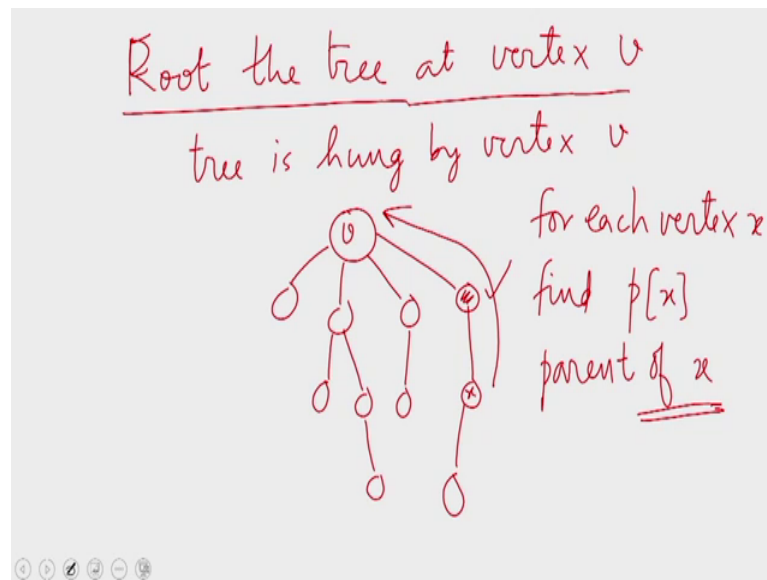 Root the tree at vertex v
tree is hung by vertex v
for each vertex x
find p[x]
parent of x
v
x